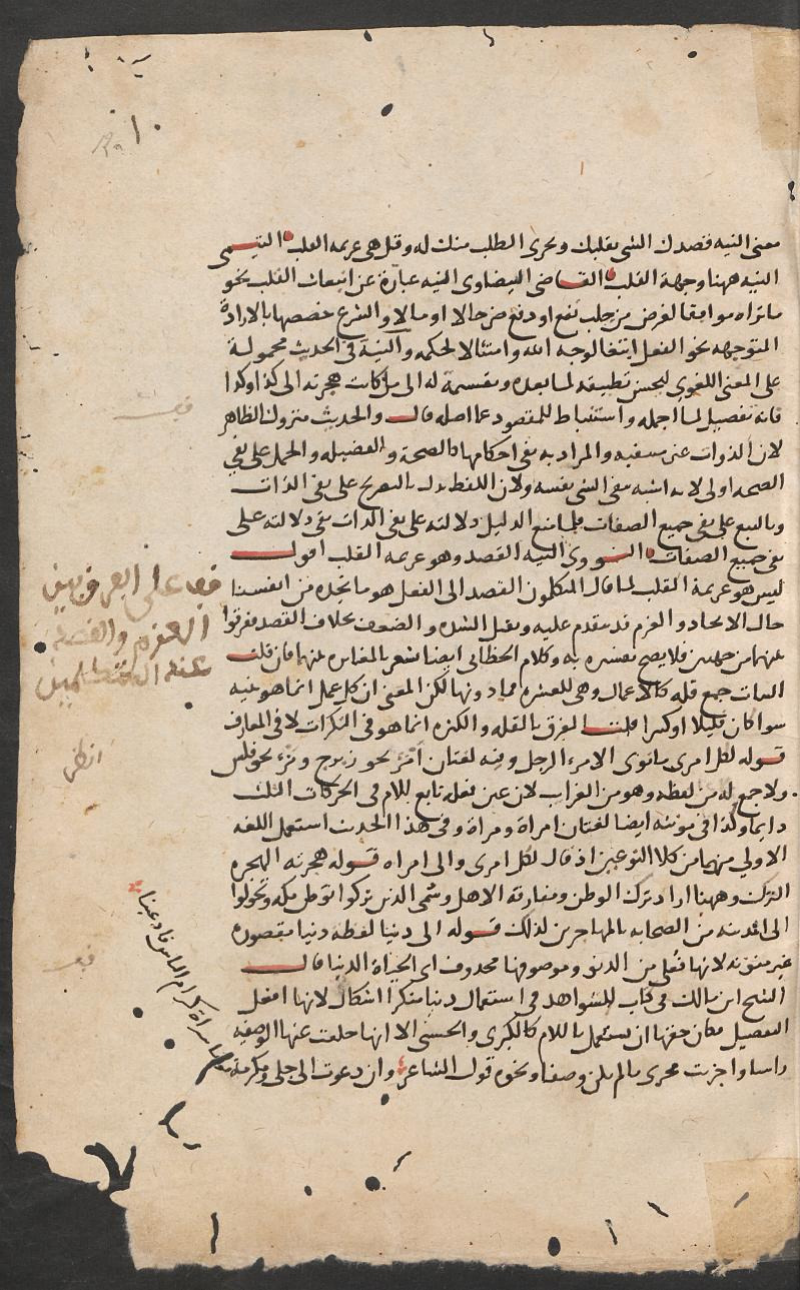 ١٠
معنى النيه قصدك الشي بقلبك وتحرى الطلب منك له وقيل هى عزيمه القلب التيمى
النيه ههنا وجهة القلب القاضى البيضاوى النيه عبارة عن انبعاث القلب نحو
ما تراه موافقا لغرض من جلب نفع او دفع ضر حالا او مالا والشرع خصصها بالارادة
المتوجهه نحو الفعل ابتغا لوجه الله وامتثالا لحكمه والنية فى الحديث محمولة
على المعنى اللغوي ليحسن تطبيقه لما بعده وتقسيمه له الى من كانت هجرته الى كذا وكذا
فانه تفصيل لما اجمله واستنباط للمقصود عما اصله قال والحديث متروك الظاهر
لان الذوات غير منتفيه والمراد به نفى احكامها كالصحة والفضيله والحمل على نفى
الصحه اولى لانه اشبه بنفى الشى نفسه ولان اللفظ يدل بالتصريح على نفى الذات
وبالتبع على نفى جميع الصفات فلما منع الدليل دلالته على نفى الذات بقى دلالته على
نفى جميع الصفات النووى النيه القصد وهو عزيمه القلب اقول
ليس هو عزيمة القلب لما قال المتكلمون القصد الى الفعل هو ما نجده من انفسنا
حال الايجاد والعزم قد يتقدم عليه ويقبل الشده والضعف بخلاف القصد ففرقوا
بينهما من جهتين فلا يصح تفسيره به وكلام الخطابى ايضا مشعر بالمغايره بينهما فان قلت
النيات جمع قله كالاعمال وهى للعشره فما دونها لكن المعنى ان كل عمل انما هو بنيه
سوا كان قليلا او كثيرا قلت الفرق بالقله والكثره انما هو فى النكرات لا فى المعارف
قوله لكل امرى ما نوى الامرء الرجل وفيه لغتان امرء نحو زبرج ومرء نحو فلس
ولا جمع له من لفظه وهو من الغراب لان عين فعله تابع للام فى الحركات الثلث
دايما وكذا فى مونثه ايضا لغتان امراة ومراة وفى هذا الحديث استعمل اللغه
الاولى منهما من كلا النوعين اذ قال لكل امرى والى امراه قوله هجرته الهجره
الترك وههنا اراد ترك الوطن ومفارقه الاهل وسمى الذين تركوا توطن مكه وتحولوا
الى المدينه من الصحابه بالمهاجرين لذلك قوله الى دنيا لفظه دنيا مقصوره
غير منونه لانها فعلى من الدنو وموصوفها محذوف اى الحياة الدنيا قال
الشيخ ابن مالك فى كتاب الشواهد فى استعمال دنيا منكرا اشكال لانها افعل
التفضيل فكان حقها ان يستعمل باللام كالكبرى والحسنى الا انها خلعت عنها الوصفيه
راسا واجرت مجرى ما لم يكن وصفا ونحوه قول الشاعر وان دعوت الى جلى ومكرمة
سراة كرام الناس فادعينا
قف على الفرق بين
العزم والقصد
عند المتكلمين
انظر
قف